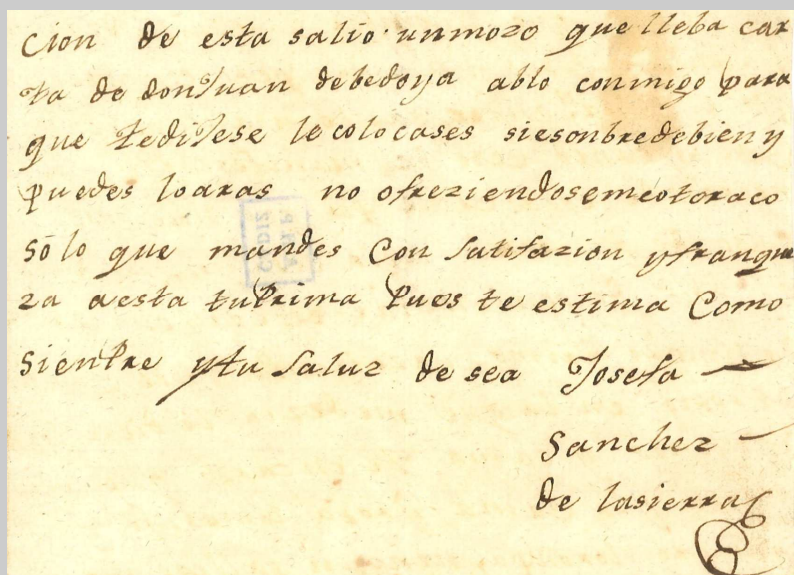 cion de esta salio unmozo que lleba car
ta de donJuan debedoya ablo conmigo para
que tediJese le colocases siesonbredebien y
puedes loaras no ofreziendosemeotoraco
solo que mandes Con satifazion yfranque
za aesta tuPrima Pues te estima Como
sienPre ytu saluz de sea Josefa
Sanchez
de lasierra